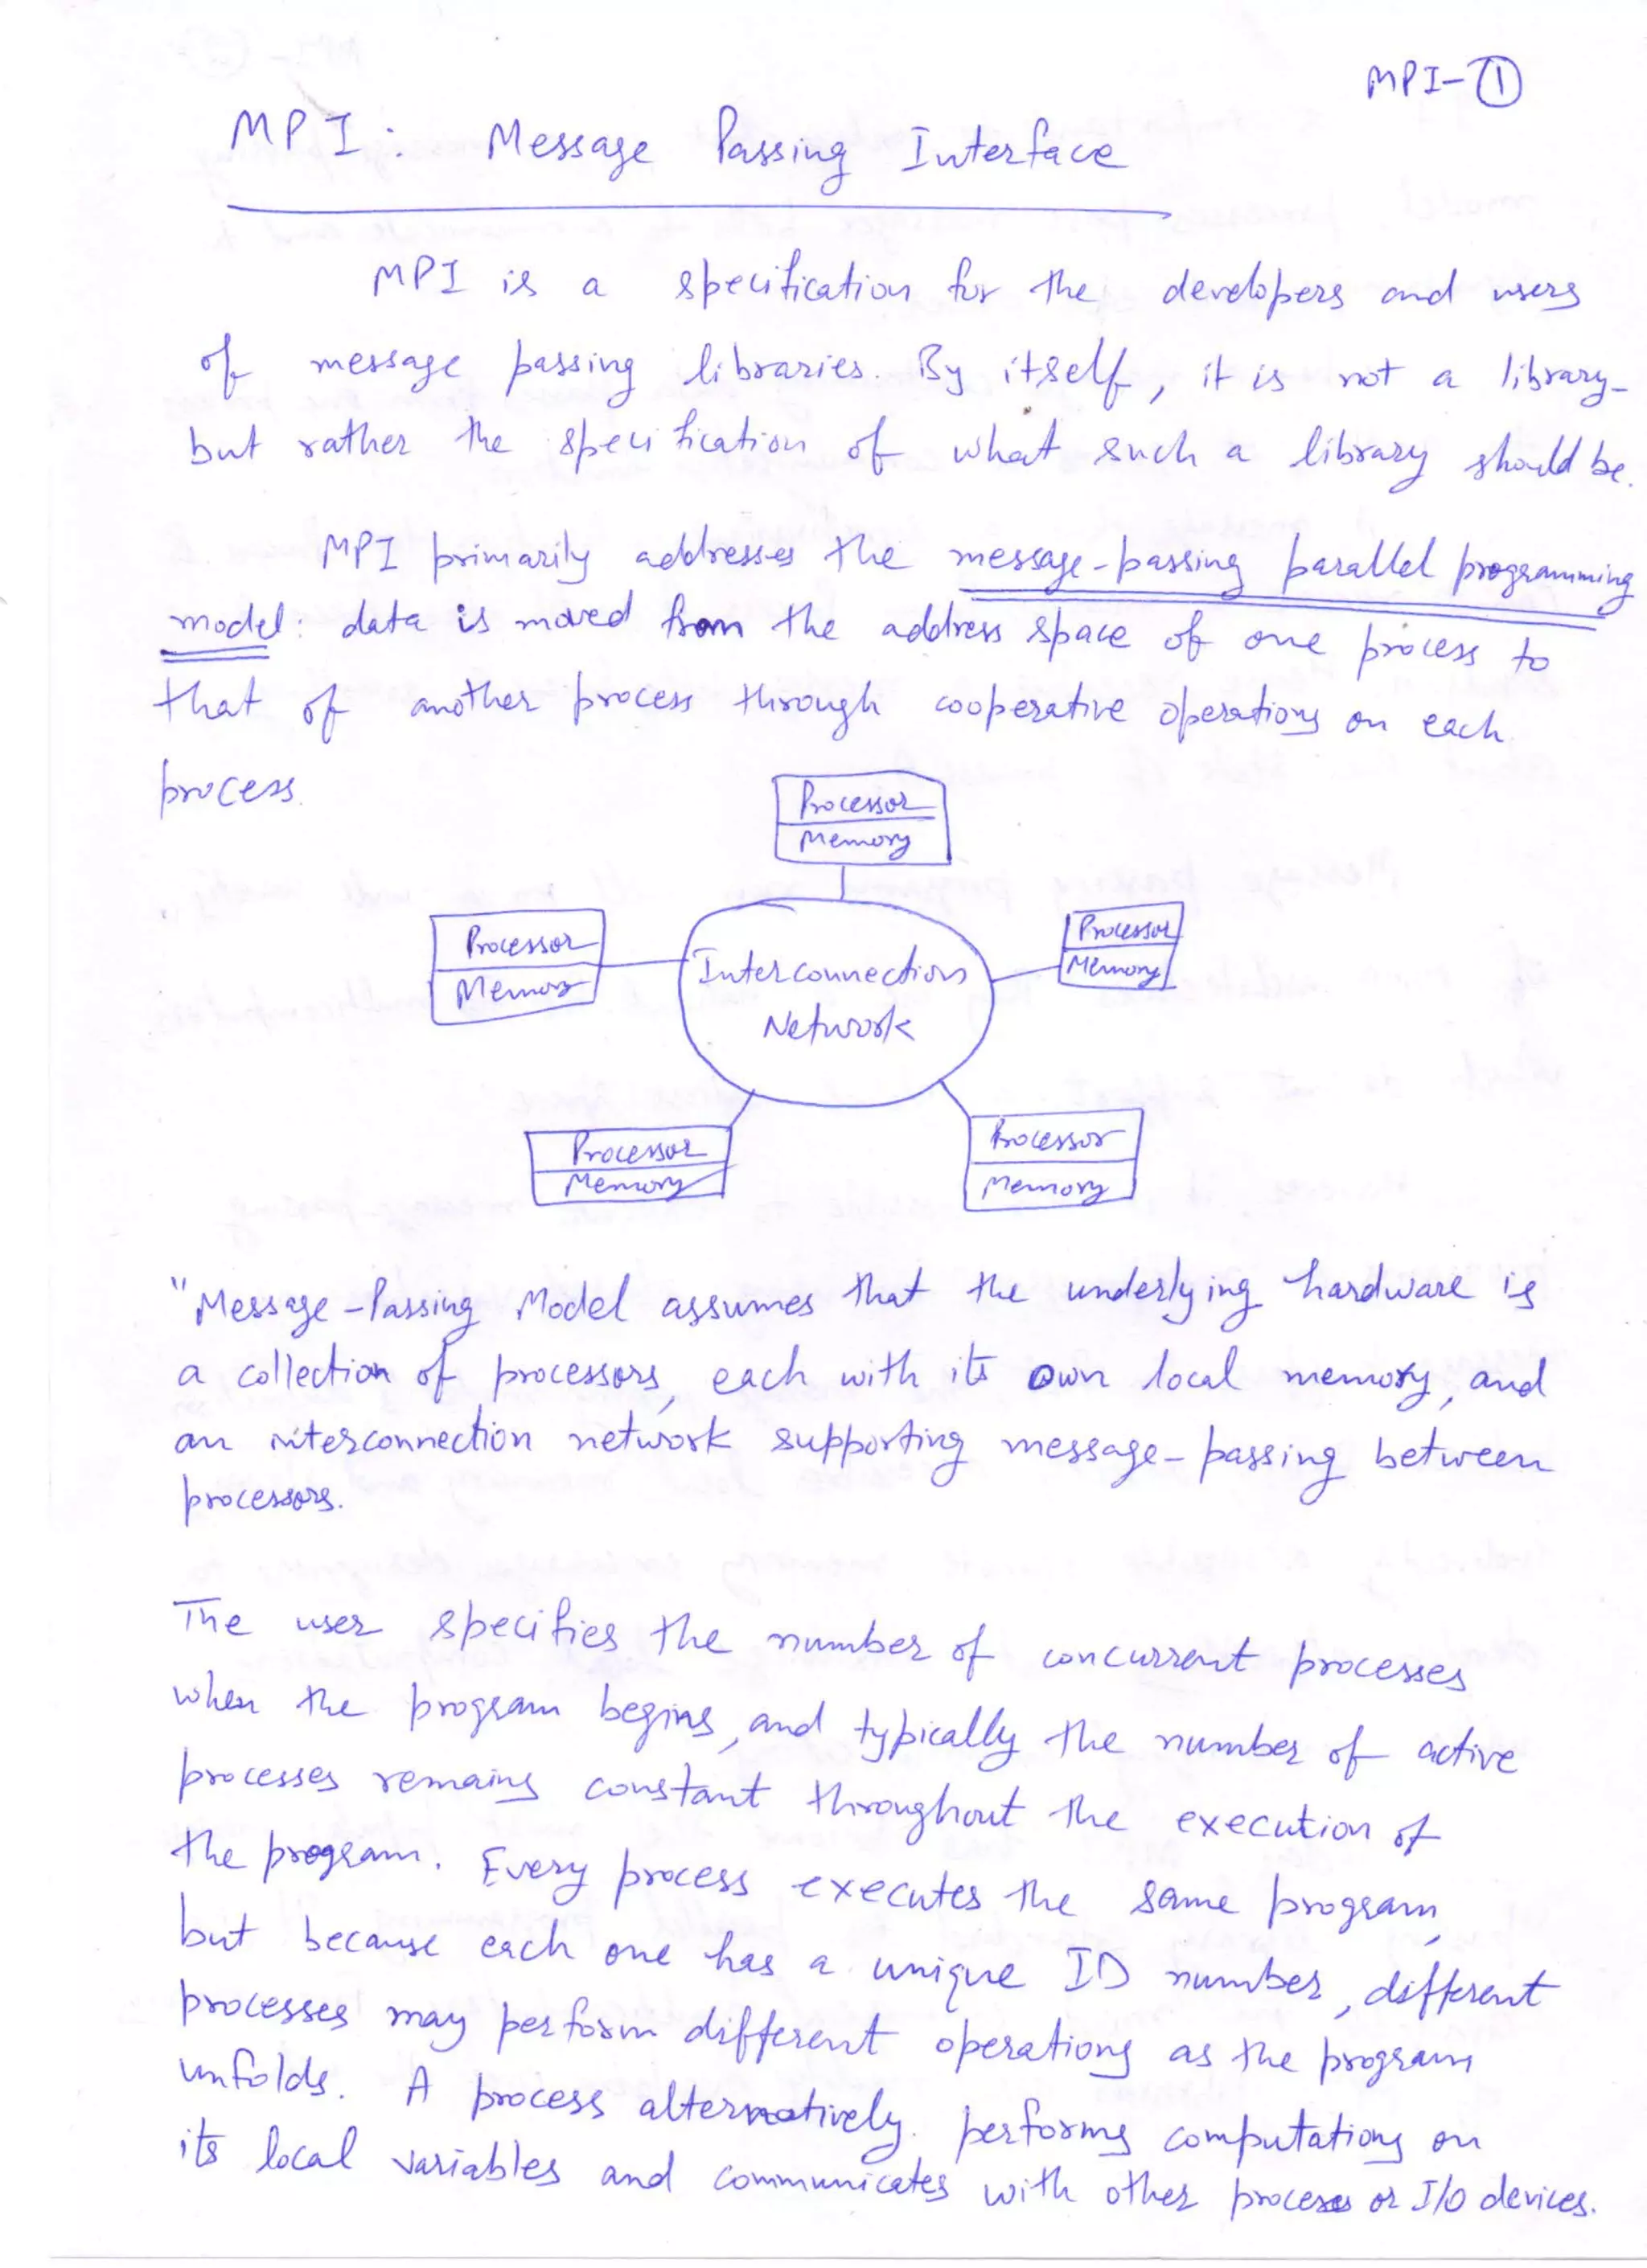 MPI-①
MPI: Message Passing Interface
MPI is a specification for the developers and users
of message passing libraries. By itself, it is not a library-
but rather the specification of what such a library should be.
MPI primarily addresses the message-passing parallel programming
model: data is moved from the address space of one process to
that of another process through cooperative operations on each
process.
Processor
Memory
Processor
Memory
Interconnection
Network
Processor
Memory
Processor
Memory
Processor
Memory
"Message-Passing Model assumes that the underlying hardware is
a collection of processors, each with its own local memory, and
an interconnection network supporting message-passing between
processors.
The user specifies the number of concurrent processes
when the program begins, and typically the number of active
processes remains constant throughout the execution of
the program. Every process executes the same program,
but because each one has a unique ID number, different
processes may perform different operations as the program
unfolds. A process alternatively performs computations on
its local variables and communicates with other process or I/O devices.